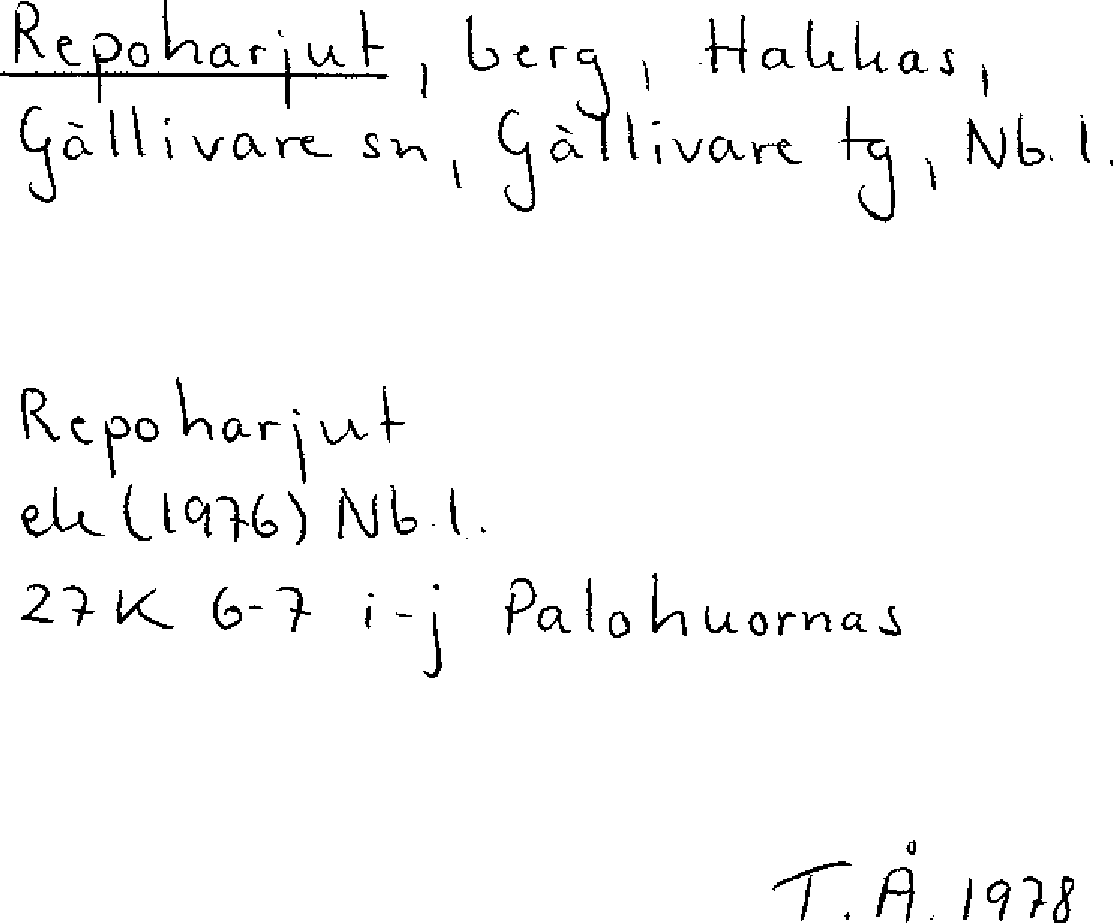 Repoharjut, berg, Hakkas,
Gällivare sn, Gällivare tg, Nb. l.
Repoharjut
ek (1976) Nb. l.
27K 6-7 i-j Palohuornas
T. Å. 1978